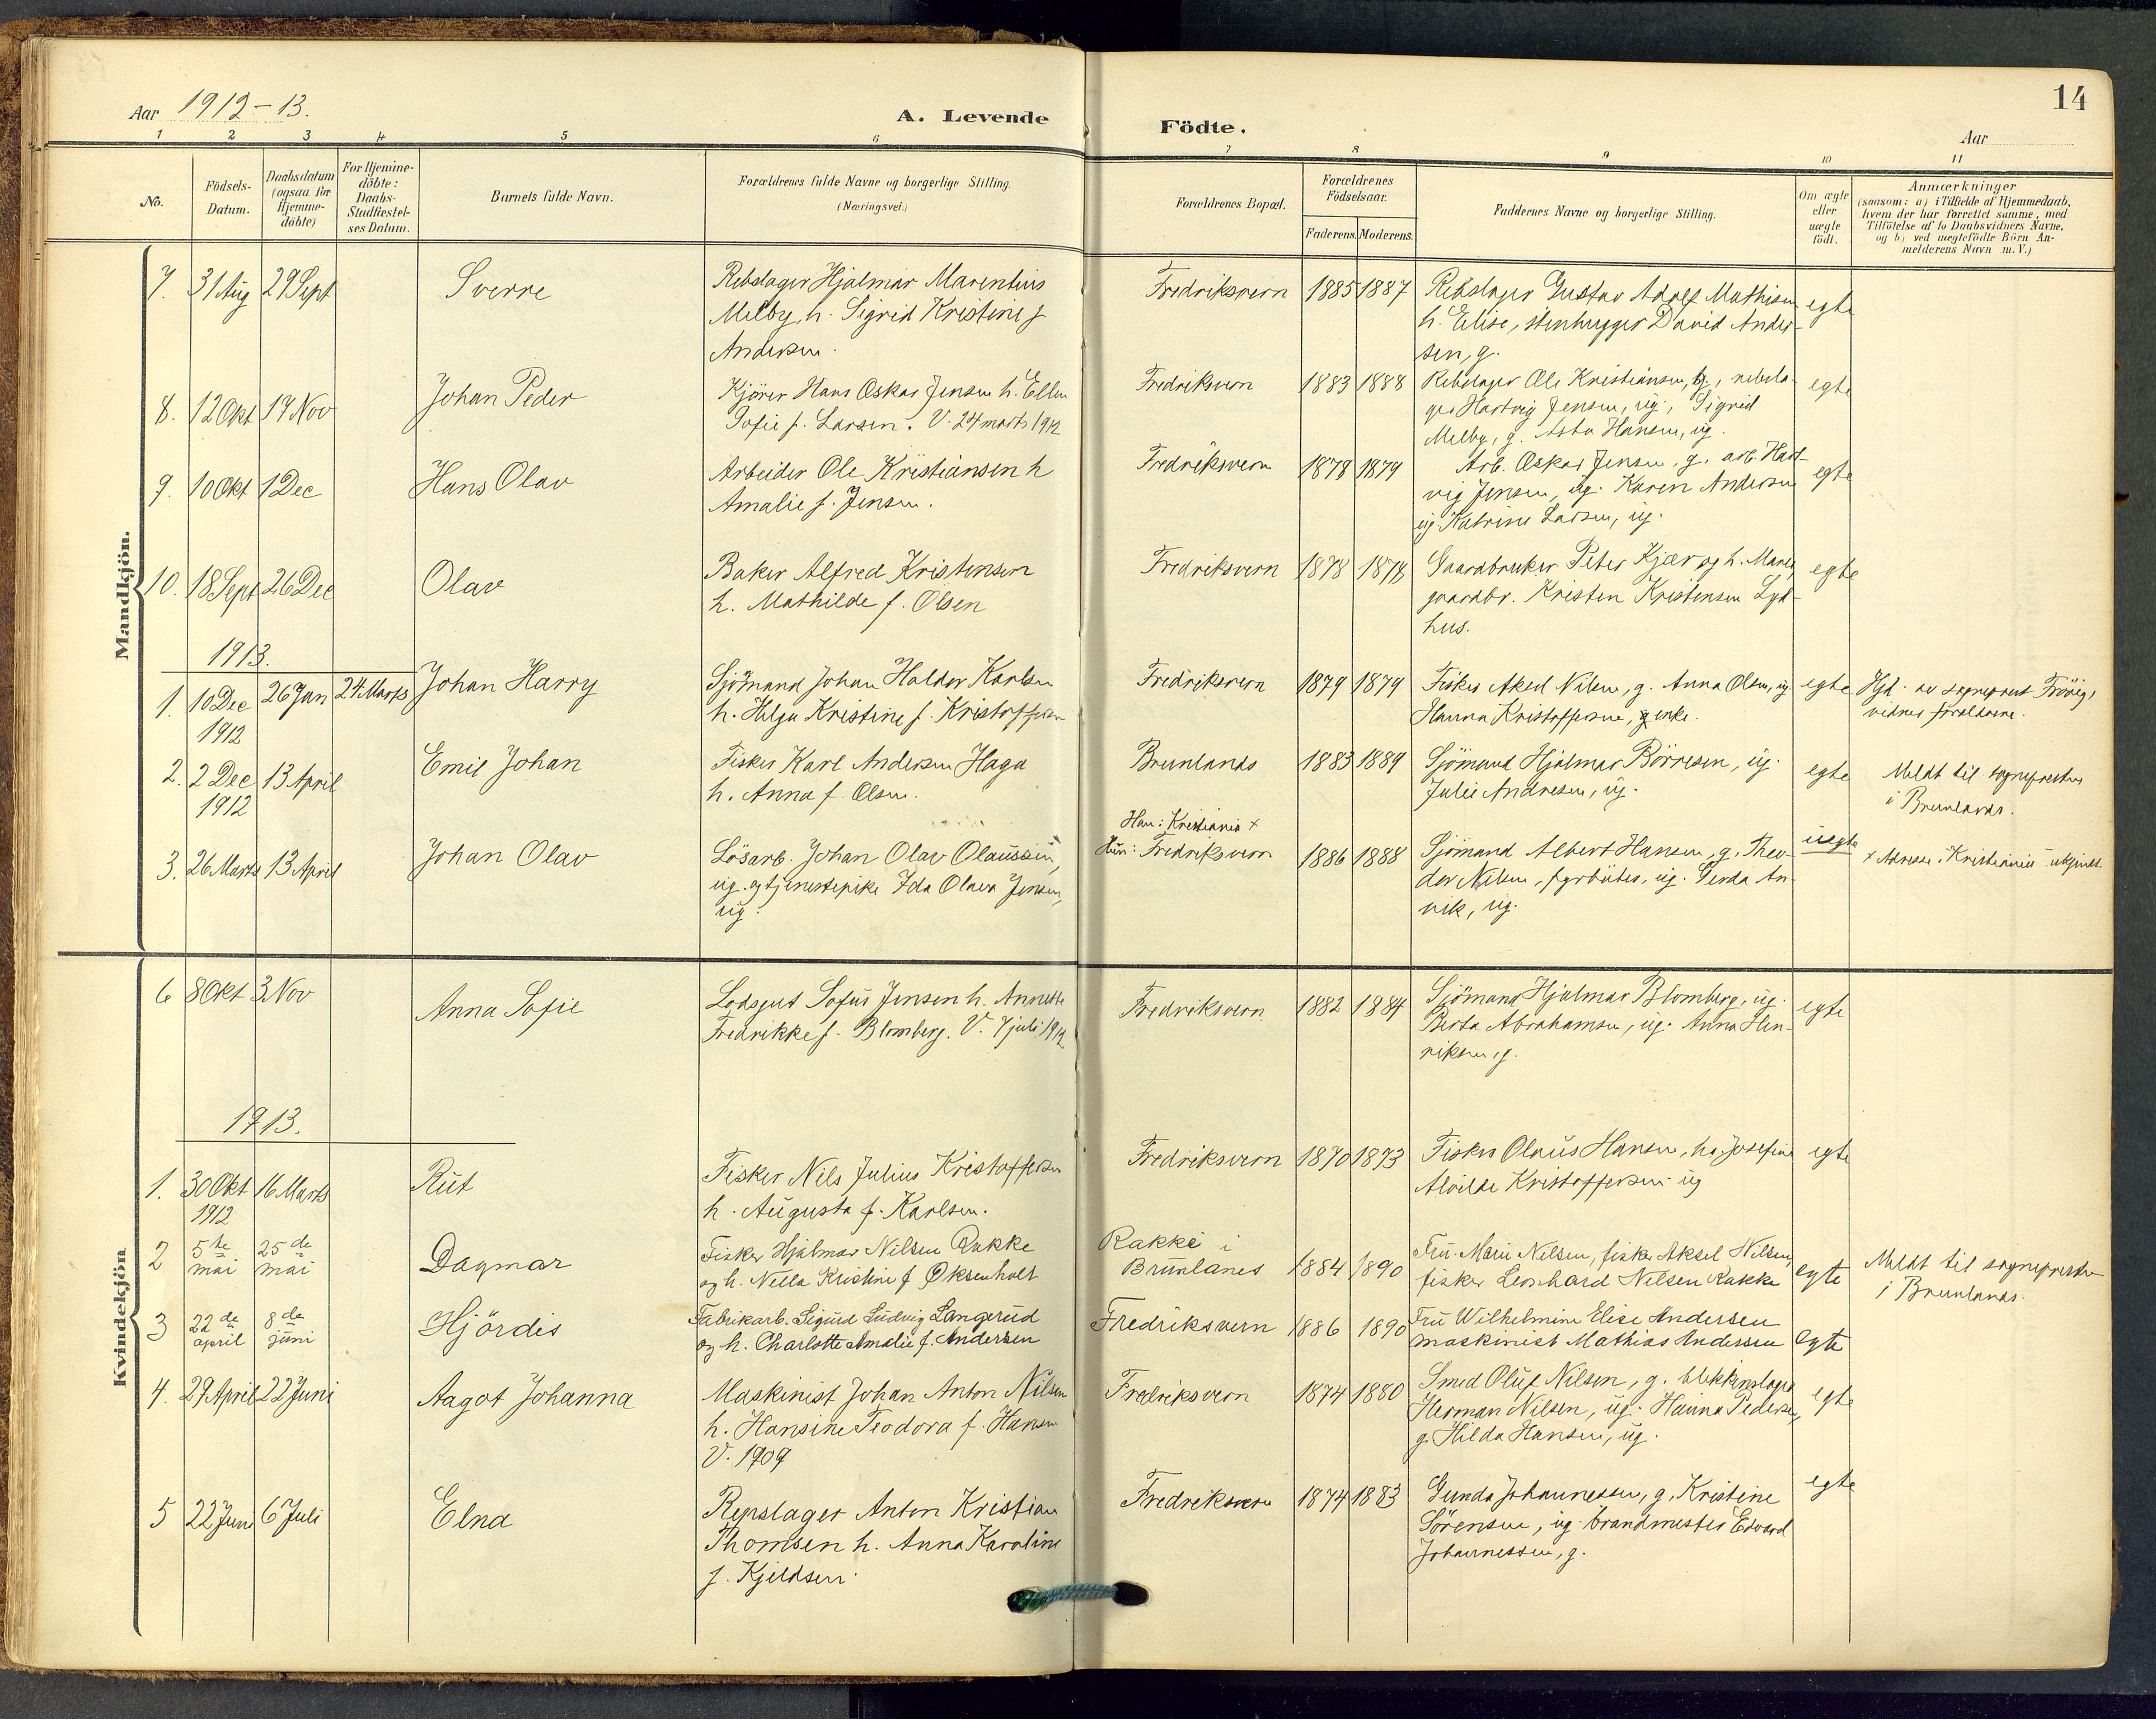 Aar 1912-13. A. Levende Födte. Aar 14
1 2 3 4 5 6 7 8 9 10 11
No.
Födsels-
Datum.
Daabsdatum
(ogsaa for
Hjemme-
döbte)
For Hjemme-
döbte:
Daabs-
Stadfæstel-
ses Datum.
Barnets fulde Navn.
Forældrenes fulde Navne og borgerlige Stilling.
(Næringsvei.)
Forældrenes Bopæl.
Forældrenes
Födselsaar.
Faderens. Moderens.
Faddernes Navne og borgerlige Stilling.
Om ægte
eller
uægte
födt.
Anmærkninger
(saasom: a) i Tilfælde af Hjemmedaab,
hvem der har forrettet samme, med
Tilföielse af to Daabsvidners Navne,
og b) ved uægtefödte Börn An-
melderens Navn m. V.)
Mandkjön.
7. 31 Aug 29 Sept Sverre
Rebslager Hjalmar Marentius
Melby, h. Sigrid Kristine f
Andersen.
Fredriksvern 1885 1887
Rebslager Gustav Adolf Mathisen
h. Elise, stenhugger David Ander-
sen, g.
egte
8. 12 Okt 17 Nov Johan Peder
Kjörer Hans Oskar Jensen h. Ellen
Sofie f. Larsen. V. 24 marts 1912
Fredriksvern 1883 1888
Rebslager Ole Kristiansen, g., rebsla-
ger Hartvig Jensen, ug., Sigrid
Melby, g. Asta Hansen, ug.
egte
9. 10 Okt 1 Dec Hans Olav
Arbeider Ole Kristiansen h
Amalie f. Jensen.
Fredriksvern 1878 1879
Arb. Oskar Jensen, g. arb. Hart-
vig Jensen, ug. Karen Andersen
ug Katrine Larsen, ug.
egte
10. 18 Sept 26 Dec Olav
Baker Alfred Kristensen
h. Mathilde f. Olsen
Fredriksvern 1878 1878
Gaardbruker Peter Kjær og h. Maren,
gaardbr. Kristen Kristensen Lyd-
hus.
egte
1913.
1. 10 Dec 1912 26 Jan 24 Marts Johan Harry
Sjömand Johan Haldor Karlsen
h. Helga Kristine f. Kristoffersen
Fredriksvern 1879 1879
Fisker Aksel Nilsen, g. Anna Olsen, ug.
Hanna Kristoffersen, enke.
egte
Hjd. av sogneprest
vidner forældrene.
2. 2 Dec 1912 13 April Emil Johan
Fisker Karl Andersen Haga
h. Anna f. Olsen.
Brunlanes 1883 1889
Sjömand Hjalmar Börresen, ug.
Julie Andresen, ug.
egte
Meldt til sognepresten
i Brunlanes.
3. 26 Marts 13 April Johan Olav
Lösarb. Johan Olav Olaussen,
ug. og tjenestepike Ida Olava Jensen,
ug.
Han: Kristiania +
Hun: Fredriksvern 1886 1888
Sjömand Albert Hansen, g. Theo-
dor Nilsen, fyrböter, ug. Gerda An-
vik, ug.
uegte
+ Adresse i Kristiania ukjendt
Kvindekjön.
6 8 Okt 3 Nov Anna Sofie
Lodsgut Sofus Jensen h. Annette
Fredrikke f. Blomberg. V. 7 juli 1912
Fredriksvern 1882 1884
Sjömand Hjalmar Blomberg, ug.
Berta Abrahamsen, ug. Anna Hen-
riksen, g.
egte
1913.
1. 30 Okt 1912 16 Marts Rut
Fisker Nils Julius Kristoffersen
h. Augusta f. Karlsen.
Fredriksvern 1870 1873
Fisker Olaus Hansen, h. Josefine
Alvilde Kristoffersen ug
egte
2 5te mai 25de mai Dagmar
Fisker Hjalmar Nilsen Rakke
og h. Nella Kristine f Oksenholt
Rakke i
Brunlanes 1884 1890
Fru Marie Nilsen, fisker Aksel Nilsen,
fisker Leonhard Nilsen Rakke
egte
Meldt til sognepresten
i Brunlanes.
3 22de april 8de juni Hjördis
Fabrikarb. Sigurd Ludvig Langerud
og h. Charlotte Amalie f. Andersen
Fredriksvern 1886 1890
Fru Wilhelmine Elise Andersen
maskinist Mathias Andersen
egte
4. 29 April 22 Juni Aagot Johanna
Maskinist Johan Anton Nilsen
h. Hansine Teodora f. Hansen
V. 1909
Fredriksvern 1874 1880
Smed Oluf Nilsen, g. blikkenslager
Herman Nilsen, ug. Hanna Pedersen,
g. Hilda Hansen, ug.
egte
5 22 Juni 6 Juli Elna
Repslager Anton Kristian
Thomsen h. Anna Karoline
f. Kjeldsen.
Fredriksvern 1874 1883
Gunda Johannessen, g, Kristine
Sörensen, ug. brandmester Edvard
Johannessen, g.
egte